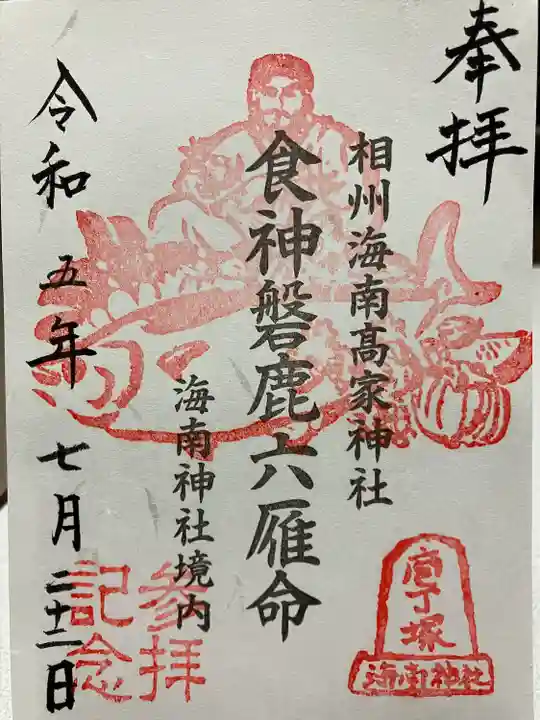 奉拝
相州海南髙家神社
食神磐鹿六雁命
海南神社境内
令和五年七月二十二日
庖丁塚
海南神社
参拝
記念